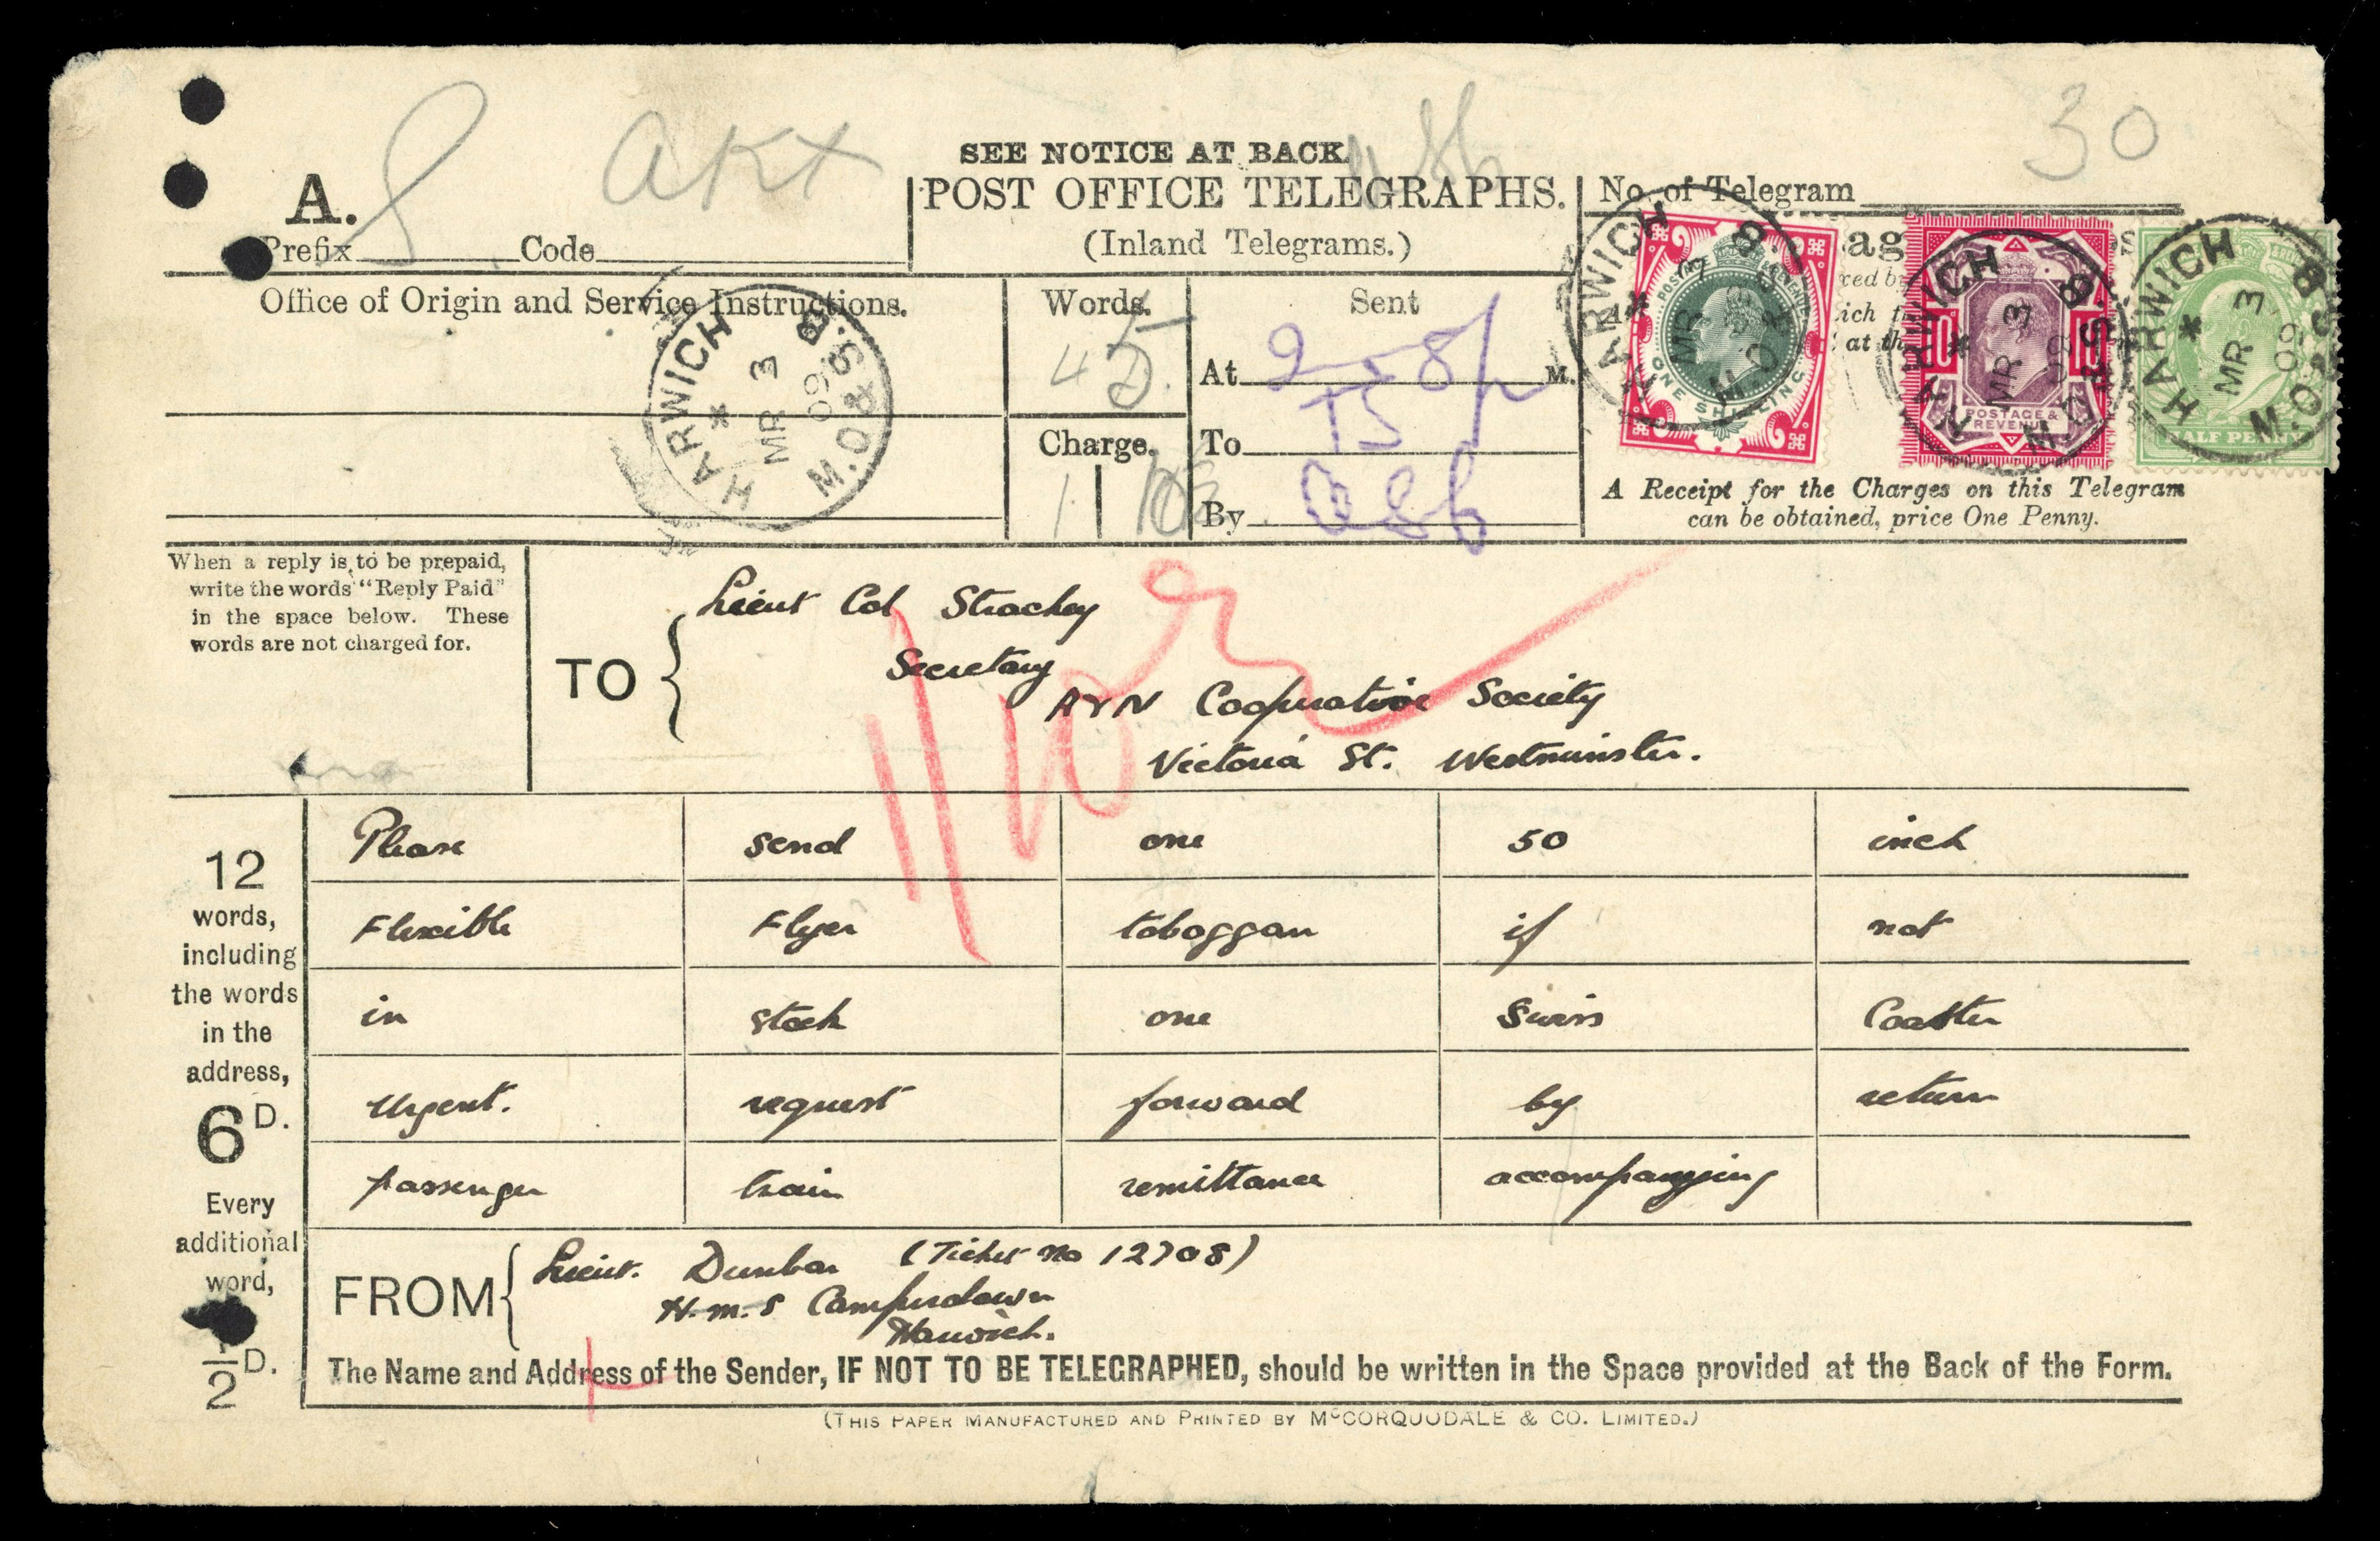 30
SEE NOTICE AT BACK.
A.
POST OFFICE TELEGRAPHS.
No. of Telegram
Prefix Code
(Inland Telegrams.)
Office of Origin and Service Instructions.
Words.
45
Sent
At M.
To
By
Charge.
HARWICH M.O. & S.B.
MR 3
09
HARWICH M.O. & S.B.
MR 3
09
ONE SHILLING
HARWICH M.O. & S.B.
MR 3
09
POSTAGE & REVENUE
HARWICH M.O. & S.B.
MR 3
09
HALF PENNY
A Receipt for the Charges on this Telegram
can be obtained, price One Penny.
When a reply is to be prepaid,
write the words "Reply Paid"
in the space below. These
words are not charged for.
TO
Lieut Col Strachey
Secretary
A & N Cooperative Society
Victoria St. Westminster.
12
words,
including
the words
in the
address,
6D.
Every
additional
word,
½D.
Please send one 50 inch
Flexible Flyer toboggan if not
in stock one Swiss Coaster
Urgent. request forward by return
passenger train remittance accompanying
FROM
Lieut. Dunbar (Ticket no 12708)
H.M.S Camperdown
Harwich.
The Name and Address of the Sender, IF NOT TO BE TELEGRAPHED, should be written in the Space provided at the Back of the Form.
(THIS PAPER MANUFACTURED AND PRINTED BY McCORQUODALE & CO. LIMITED.)